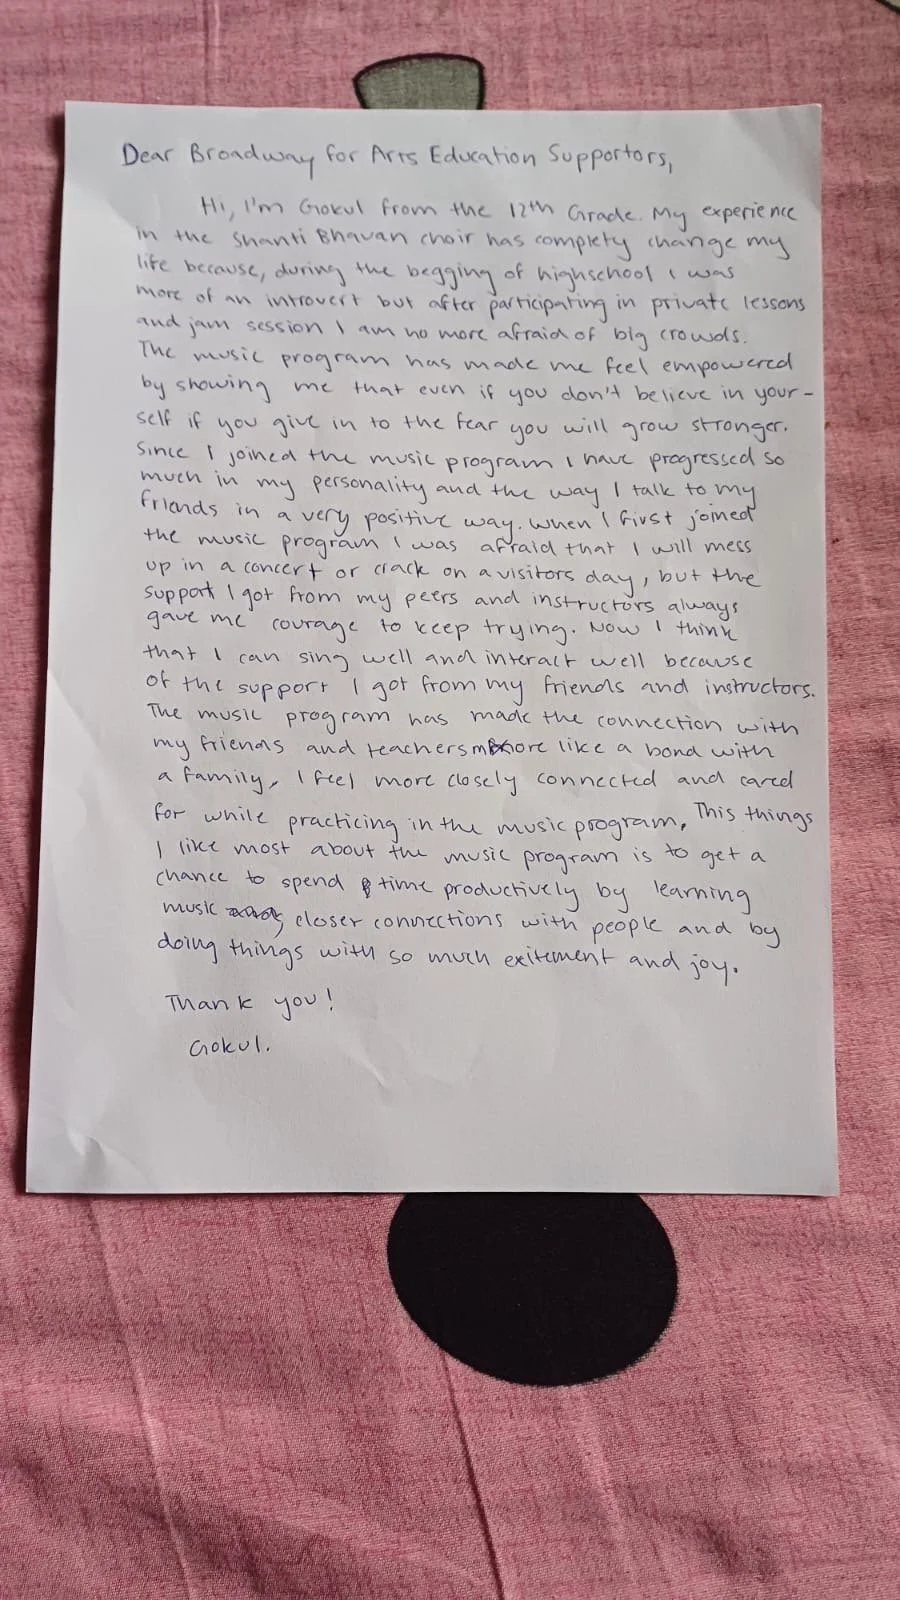 Dear Broadway for Arts Education Supportors,
Hi, I'm Gokul from the 12th Grade. My experience
in the Shanti Bhavan choir has complety change my
life because, during the begging of highschool I was
more of an introvert but after participating in private lessons
and jam session I am no more afraid of big crowds.
The music program has made me feel empowered
by showing me that even if you don't believe in your-
self if you give in to the fear you will grow stronger.
Since I joined the music program I have progressed so
much in my personality and the way I talk to my
friends in a very positive way. When I first joined
the music program I was afraid that I will mess
up in a concert or crack on a visitors day, but the
support I got from my peers and instructors always
gave me courage to keep trying. Now I think
that I can sing well and interact well because
of the support I got from my friends and instructors.
The music program has made the connection with
my friends and teachers more like a bond with
a family, I feel more closely connected and cared
for while practicing in the music program. This things
I like most about the music program is to get a
chance to spend time productively by learning
music closer connections with people and by
doing things with so much exitement and joy.
Thank you!
Gokul.